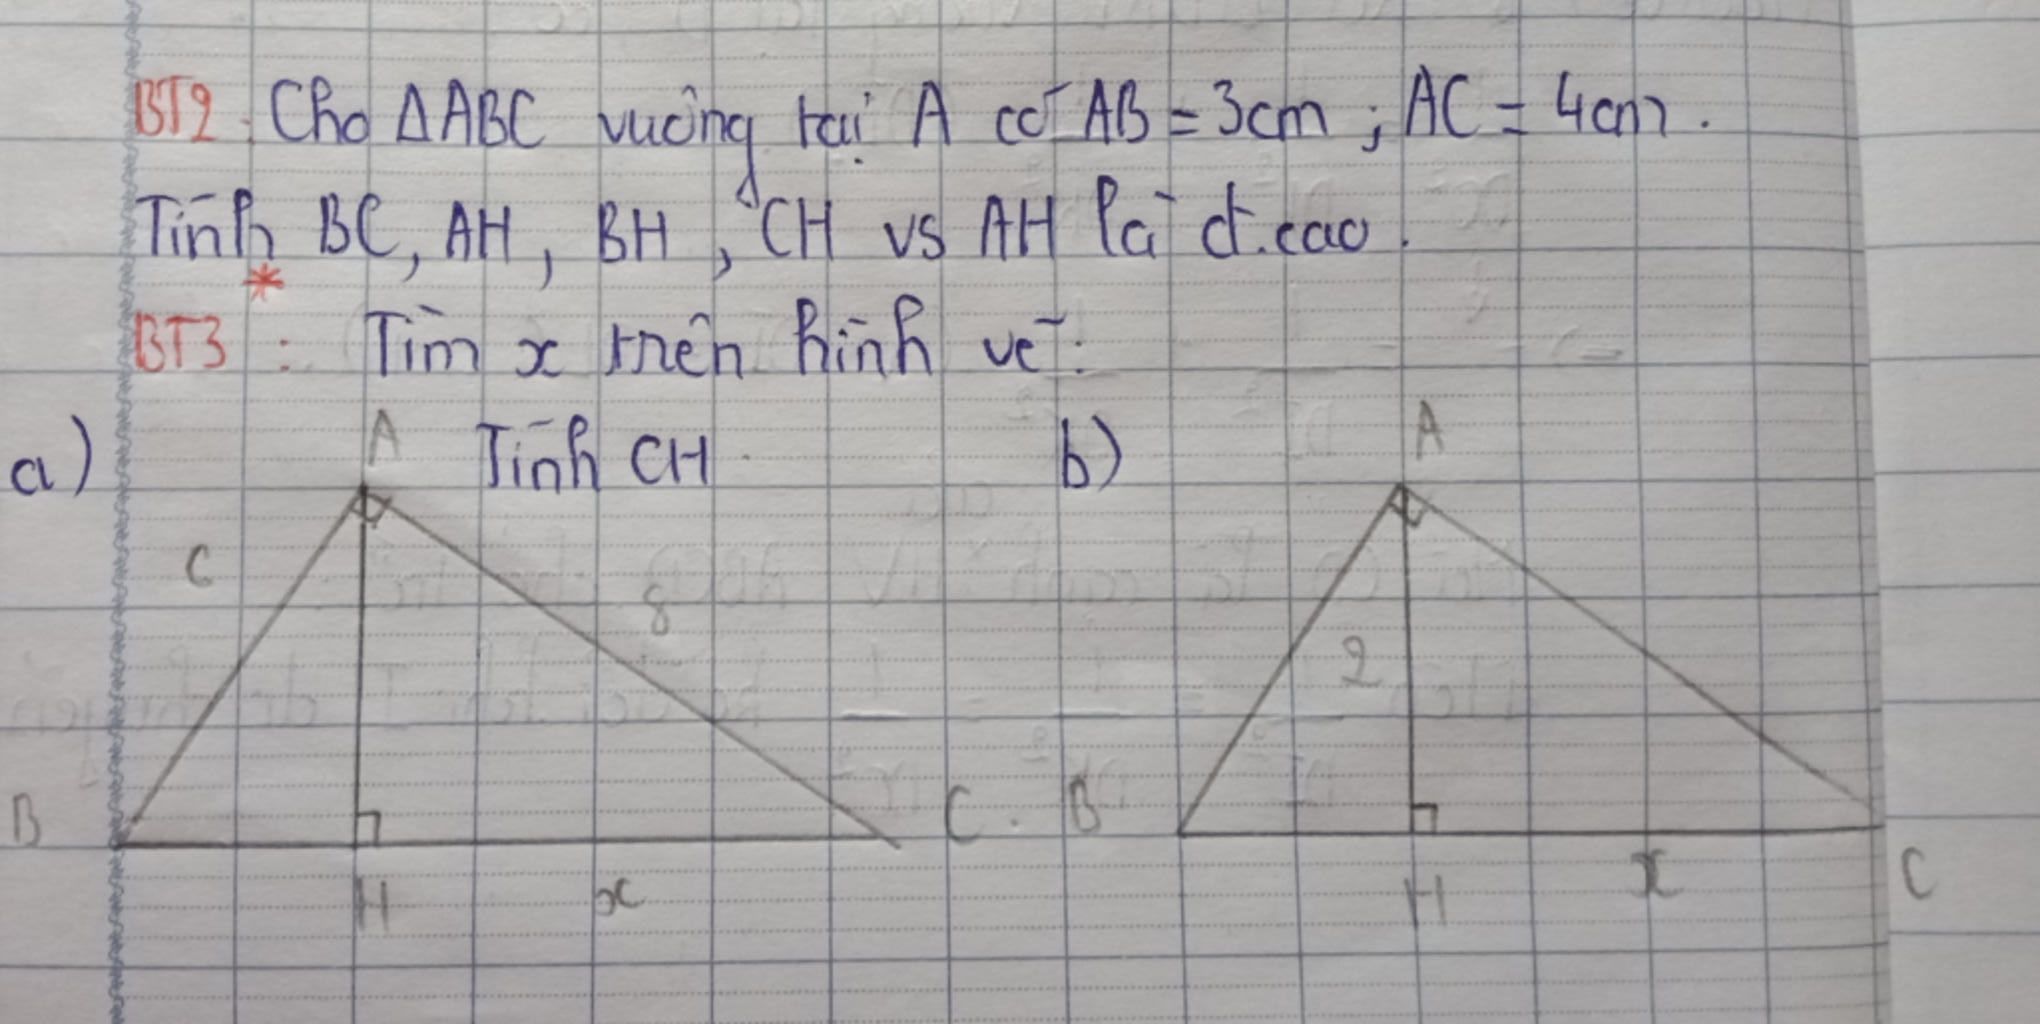 BT2. Cho ΔABC vuông tại A có AB = 3cm ; AC = 4cm.
Tính BC, AH, BH, CH vs AH là đ.cao.
*
BT3 : Tìm x trên hình vẽ:
a) A Tính CH b) A
C 8 2
B H x C. B H x C